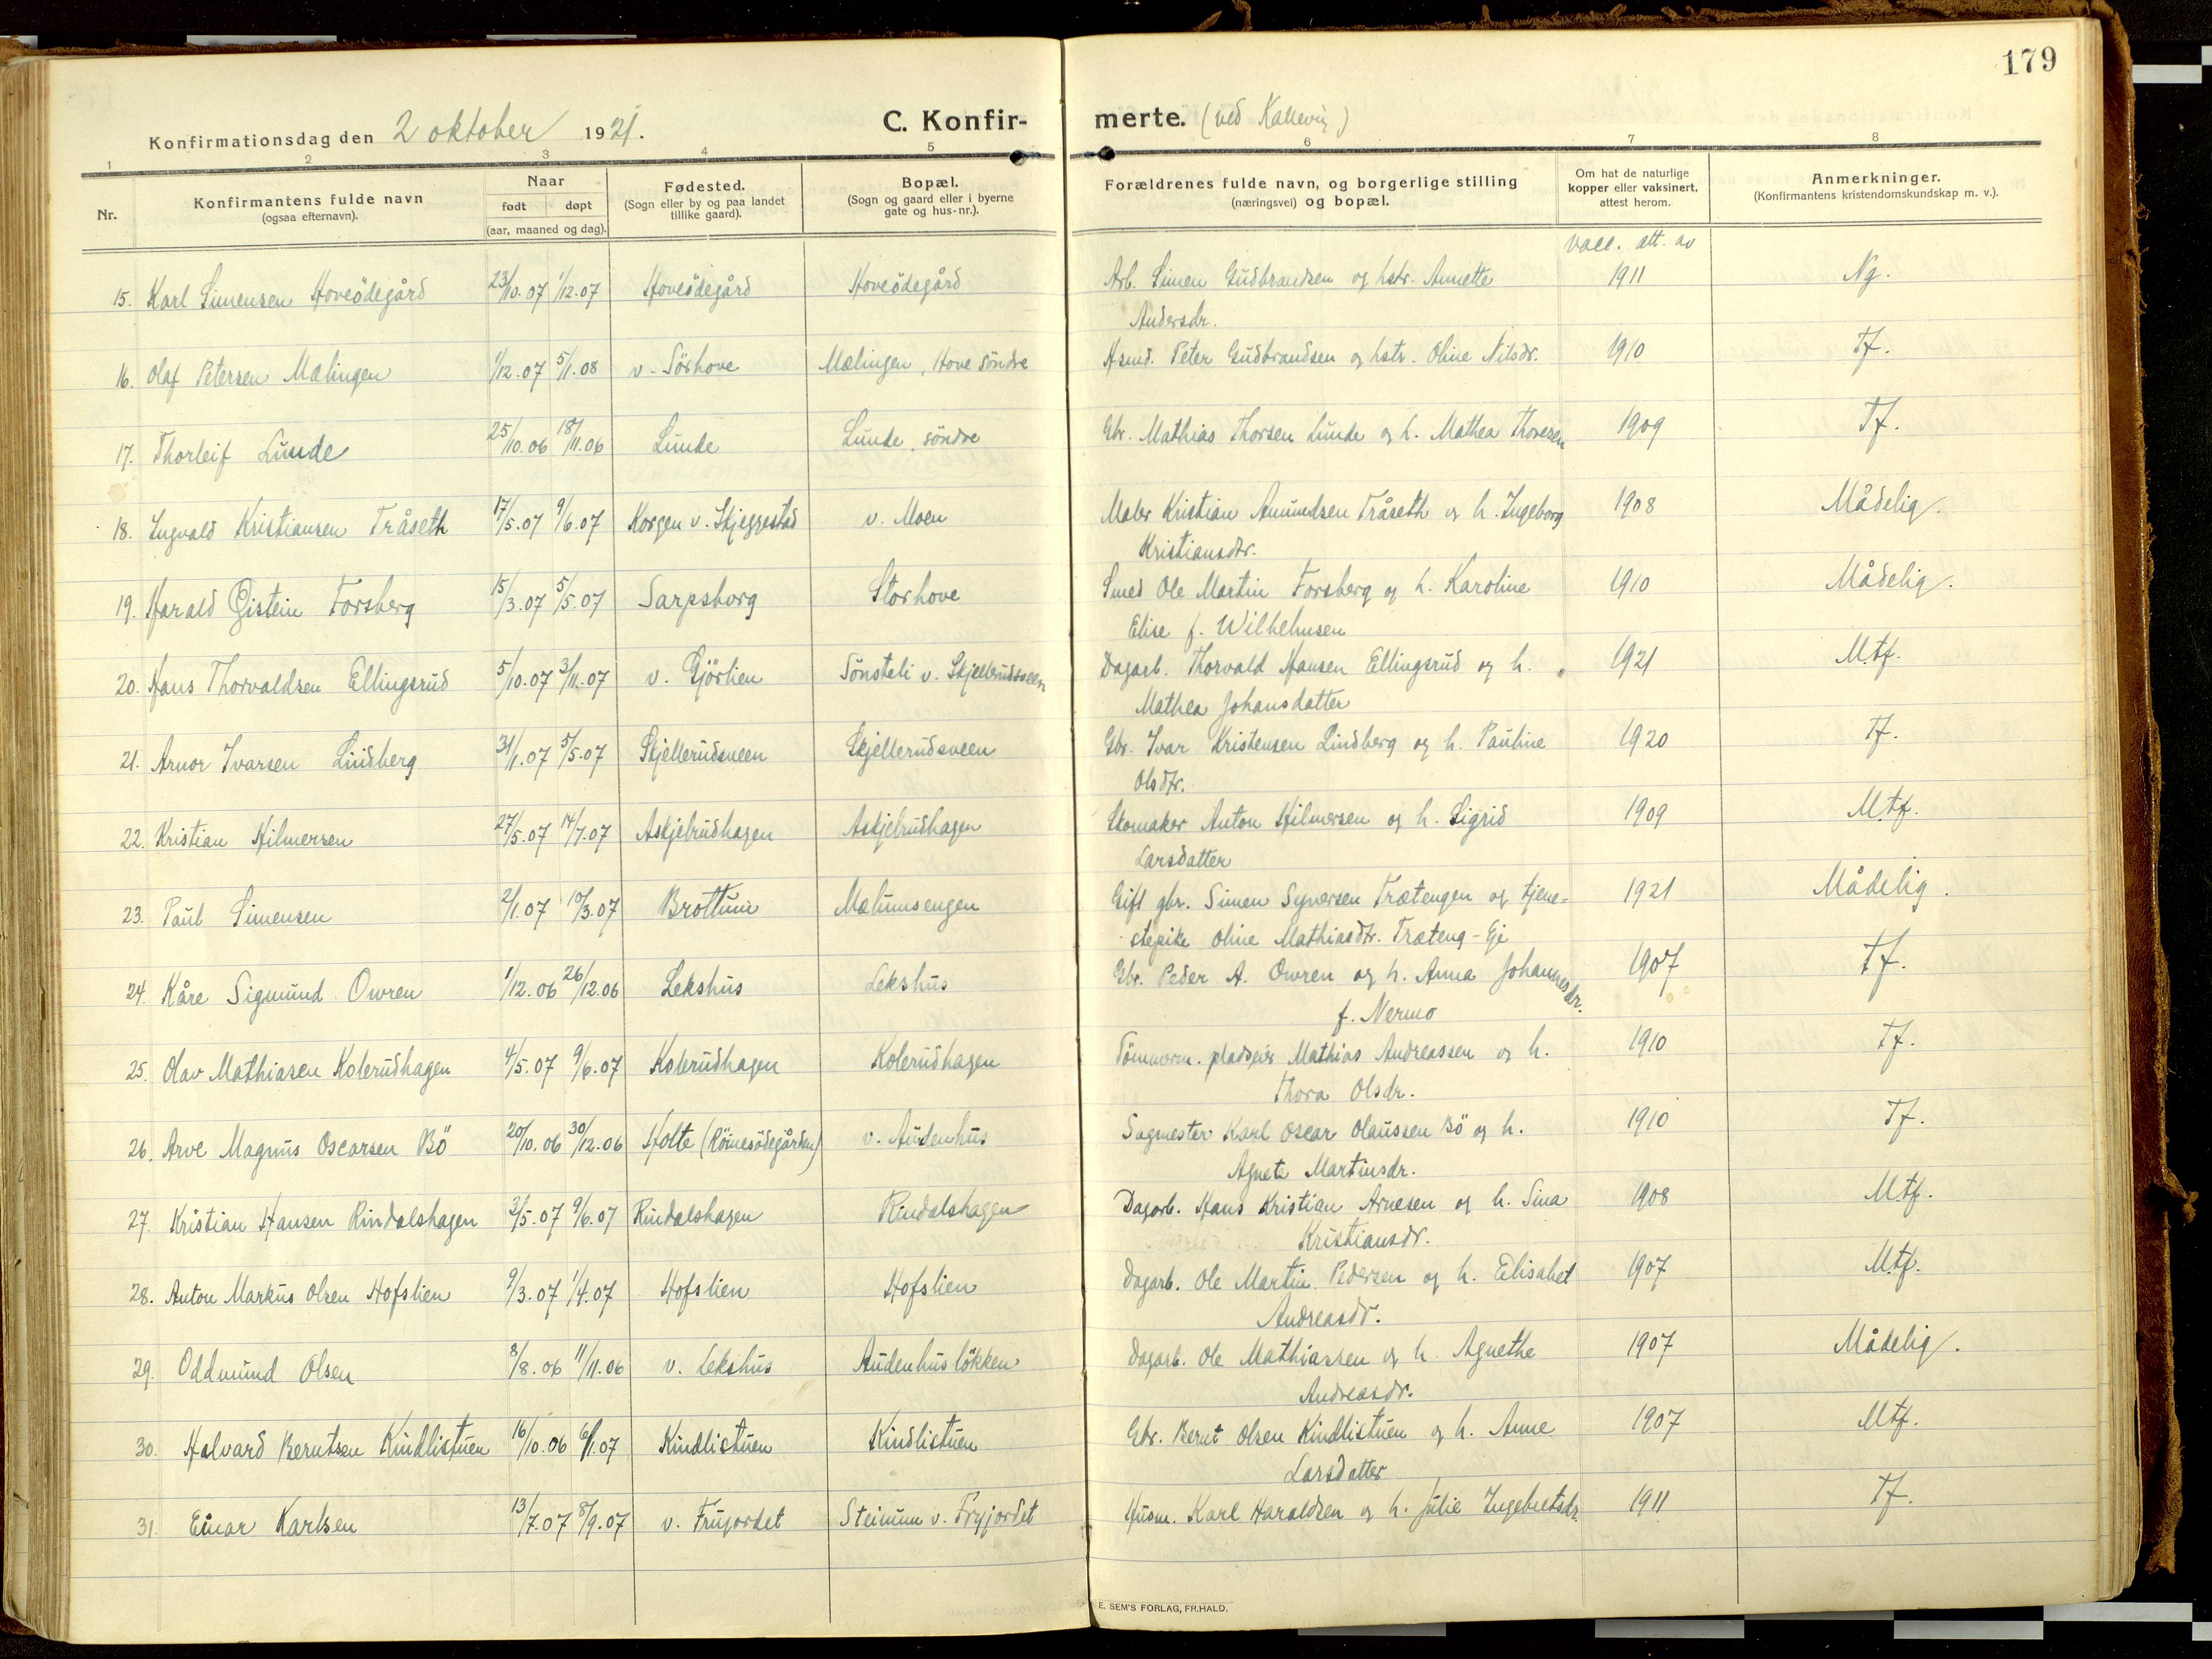 179
Konfirmationsdag den 2 oktober 1921.
C. Konfir-
merte. (ved Kallevig)
1 2 3 4 5 6 7 8
Nr.
Konfirmantens fulde navn
(ogsaa efternavn).
Naar
født døpt
(aar, maaned og dag).
Fødested.
(Sogn eller by og paa landet
tillike gaard).
Bopæl.
(Sogn og gaard eller i byerne
gate og hus-nr.).
Forældrenes fulde navn, og borgerlige stilling
(næringsvei) og bopæl.
Om hat de naturlige
kopper eller vaksinert,
attest herom.
Anmerkninger.
(Konfirmantens kristendomskundskap m. v.).
vacc. att. av
15. Karl Simensen Hoveödegård 23/10.07 1/12.07 Hoveödegård Hoveödegård Arb. Simen Gudbrandsen og hstr. Annette 1911 Ng.
Andersdr.
16. Olaf Petersen Mælingen 1/12.07 5/1.08 v. Sörhove Mælingen, Hove söndre Hsmd. Peter Gudbrandsen og hstr. Oline Nilsdr. 1910 Tf.
17. Thorleif Lunde 25/10.06 18/11.06 Lunde Lunde, söndre Gbr. Mathias Thorsen Lunde og h. Mathea Thoresen 1909 Tf.
18. Ingvald Kristiansen Tråseth 17/5.07 9/6.07 Korgen v. Skjeggestad v. Moen Maler Kristian Amundsen Tråseth og h. Ingeborg 1908 Mådelig.
Kristiansdtr.
19. Harald Øistein Forsberg 15/3.07 5/5.07 Sarpsborg Storhove Smed Ole Martin Forsberg og h. Karoline 1910 Mådelig.
Elise f. Wilhelmsen
20. Hans Thorvaldsen Ellingsrud 5/10.07 3/11.07 v. Gjörlien Sönsteli v. Skjellerudsveen Dagarb. Thorvald Hansen Ellingsrud og h. 1921 Mtf.
Mathea Johansdatter
21. Arnor Ivarsen Lindberg 31/1.07 5/5.07 Skjellerudsveen Skjellerudsveen Gbr. Ivar Kristensen Lindberg og h. Pauline 1920 Tf.
Olsdtr.
22. Kristian Hilmersen 27/5.07 14/7.07 Askjelrudhagen Askjelrudhagen Skomaker Anton Hilmersen og h. Sigrid 1909 Mtf.
Larsdatter
23. Paul Simensen 2/1.07 10/3.07 Brøttum Mælumsengen Gift gbr. Simen Syversen Trætengen og tjene- 1921 Mådelig.
stepike Oline Mathiasdtr. Træteng-Eje
24. Kåre Sigmund Owren 1/12.06 26/12.06 Lekshus Lekshus Gbr. Peder A. Owren og h. Anna Johannesdr. 1907 Tf.
f. Nermo
25. Olav Mathiasen Kolerudhagen 4/5.07 9/6.07 Kolerudhagen Kolerudhagen Tömmerm. pladseier Mathias Andreassen og h. 1910 Tf.
Thora Olsdr.
26. Arve Magnus Oscarsen Bö 20/10.06 30/12.06 Holte (Röinesödegården) v. Audenhus Sagmester Karl Oscar Olaussen Bö og h. 1910 Tf.
Agnete Martinsdr.
27. Kristian Hansen Rindalshagen 2/5.07 9/6.07 Rindalshagen Rindalshagen Dagarb. Hans Kristian Arnesen og h. Sina 1908 Mtf.
Kristiansdr.
28. Anton Markus Olsen Hofslien 9/3.07 1/4.07 Hofslien Hofslien Dagarb. Ole Martin Pedersen og h. Elisabet 1907 Mtf.
Andreasdr.
29. Oddmund Olsen 8/8.06 11/11.06 v. Lekshus Audenhuslökken Dagarb. Ole Mathiassen og h. Agnethe 1907 Mådelig.
Andreasdr.
30. Halvard Berntsen Kindlistuen 16/10.06 6/1.07 Kindlistuen Kindlistuen Gbr. Bernt Olsen Kindlistuen og h. Anne 1907 Mtf.
Larsdatter
31. Einar Karlsen 13/7.07 8/9.07 v. Frujordet Steinum v. Fryjordet Husm. Karl Haraldsen og h. Julie Ingebretsdr. 1911 Tf.
E. SEM'S FORLAG, FR.HALD.